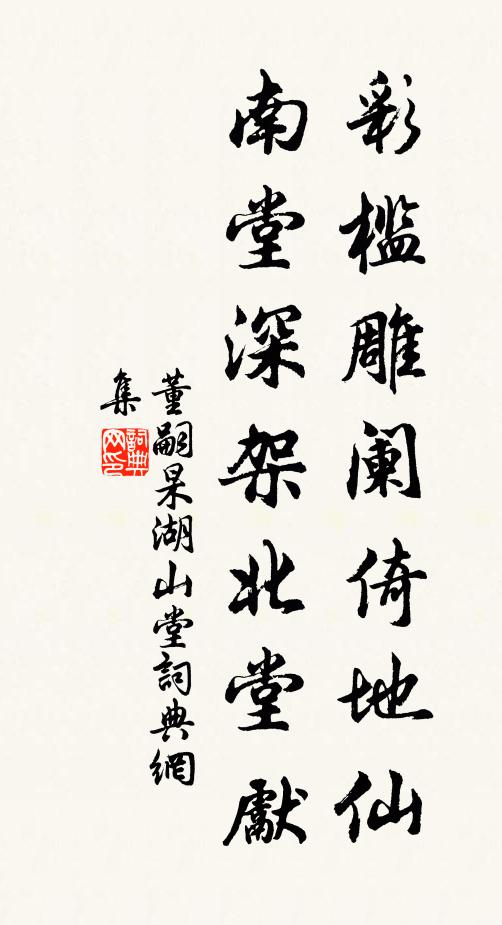 彩槛雕阑倚地仙
南堂深架北堂獻
董嗣杲湖山堂詞典網
集
詞典
网印